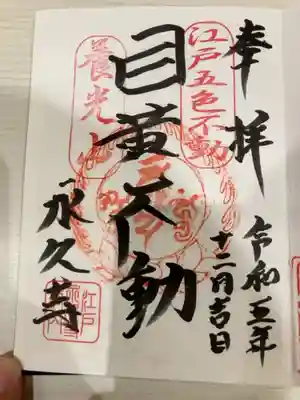 奉拝
令和五年
十二月吉日
江戸五色不動
目黄不動
養光山
永久寺
江戸